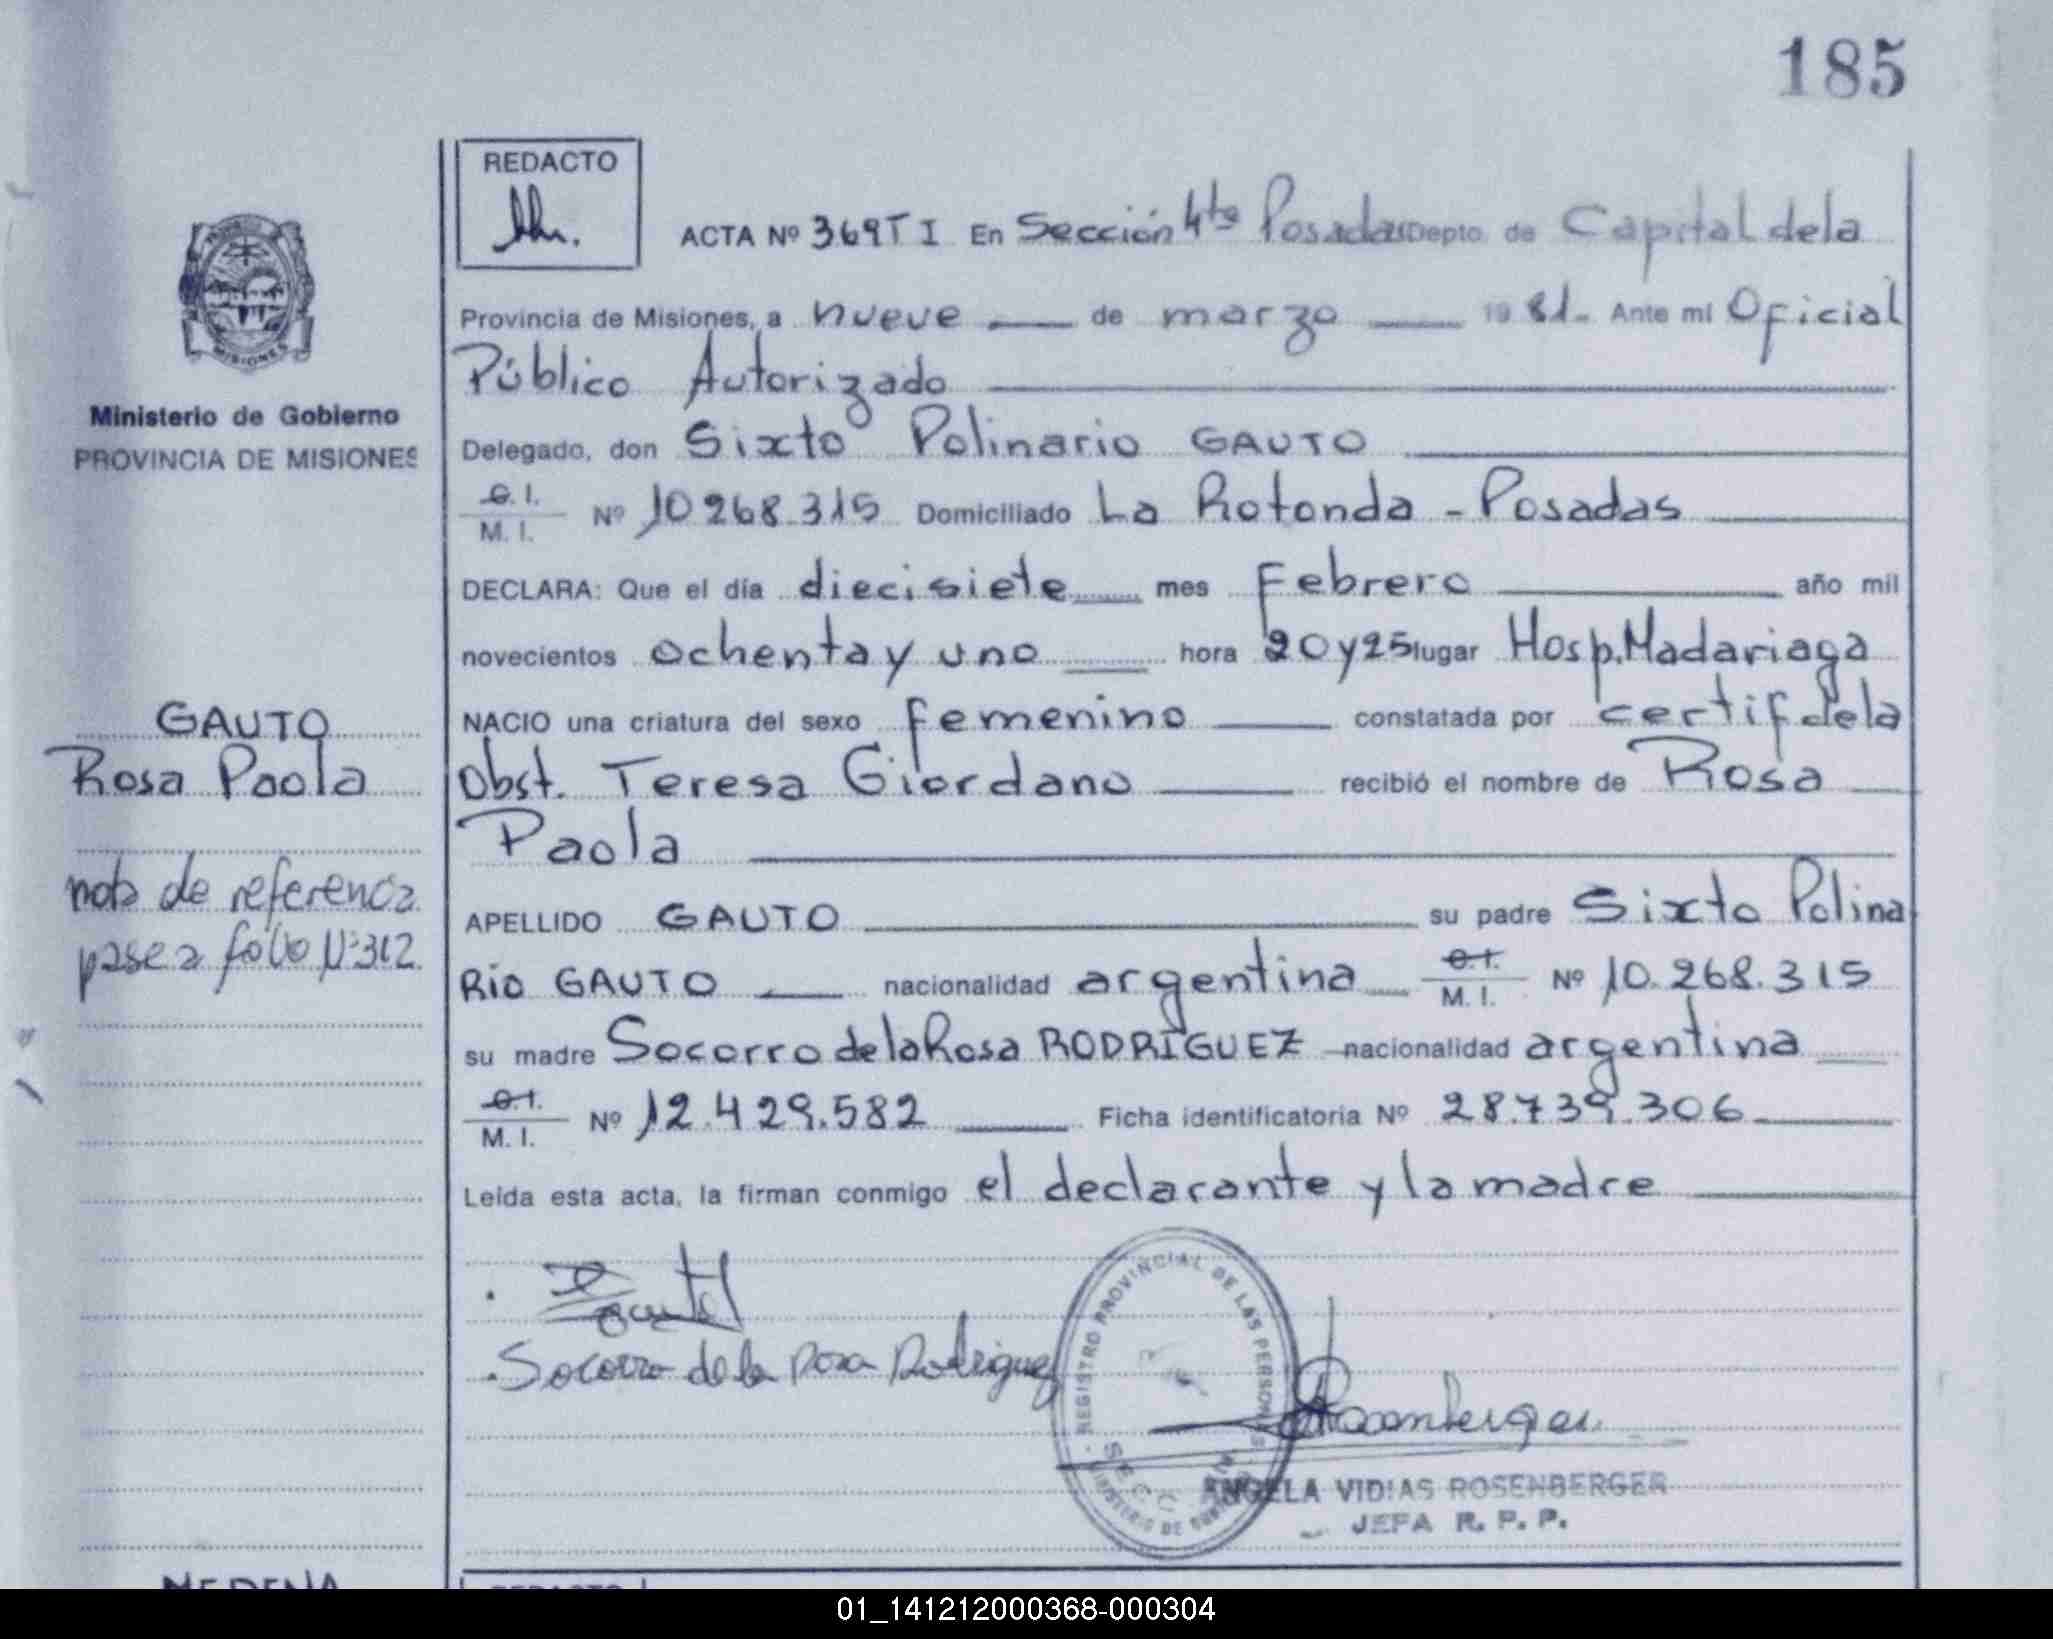 185
REDACTO
ACTA Nº 369 T I En Sección 4ta Posadas Depto. de Capital dela
Provincia de Misiones, a nueve de marzo 1981.- Ante mi Oficial
Público Autorizado
Delegado, don Sixto Polinario GAUTO
C. I.
M. I. Nº 10268.315 Domiciliado La Rotonda - Posadas
DECLARA: Que el día diecisiete mes Febrero año mil
novecientos ochenta y uno hora 20 y 25 lugar Hosp. Madariaga
NACIO una criatura del sexo femenino constatada por certif dela
Obst. Teresa Giordano recibió el nombre de Rosa
Paola
APELLIDO GAUTO su padre Sixto Polina
RIO GAUTO nacionalidad argentina C. I. M. I. Nº 10.268.315
su madre Socorro de la Rosa RODRIGUEZ nacionalidad argentina
C. I.
M. I. Nº 12.429.582 Ficha identificatoria Nº 28.739.306
Leida esta acta, la firman conmigo el declarante y la madre
Socorro de la Rosa Rodriguez
REGISTRO PROVINCIAL DE LAS PERSONAS
SECC
MINISTERIO DE
Rosenberger
ANGELA VIDIAS ROSENBERGER
JEFA R. P. P.
MISIONES
Ministerio de Gobierno
PROVINCIA DE MISIONES
GAUTO
Rosa Paola
nota de referencia
pase a folio Nº 312
01_141212000368-000304